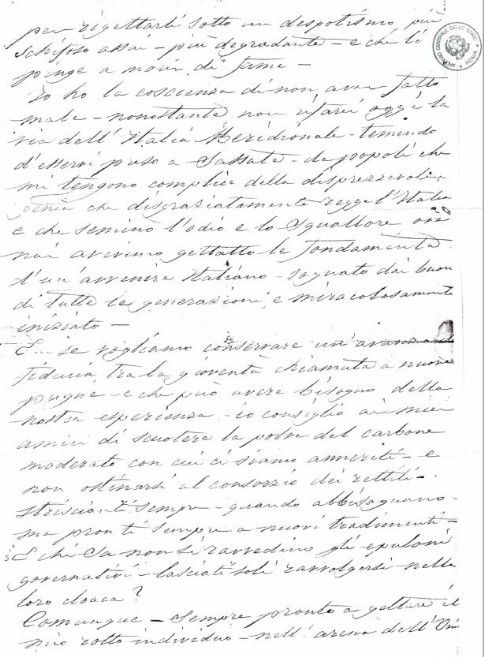 per rigettarli sotto un despotismo più
schifoso assai - più degradante - e che li
spinge a morir di fame -
Io ho la coscienza di non aver fatto
male - nonostante non rifarei oggi la
via dell'Italia Meridionale - temendo
d'esser preso a sassate - da popoli che
mi tengono complice della disprezzevole
genia che disgraziatamente regge l'Italia
e che seminò l'odio e lo squallore ove
noi avevamo gettato le fondamenta
d'un avvenire Italiano - sognato dai buoni
di tutte le generazioni, e miracolosamente
iniziato -
E se vogliamo conservare un
fiducia, tra la gioventù chiamata a nuove
pugne - e che può avere bisogno della
nostra esperienza - io consiglio ai miei
amici di scuotere la polve del carbone
moderato con cui ci siamo anneriti - e
non ostinarsi al consorzio dei rettili -
striscianti sempre - quando abbisognano -
ma pronti sempre a nuovi tradimenti -
E chi sa non si ravvedino gli epuloni
governativi - lasciati soli ravvolgersi nella
loro cloaca?
Comunque - sempre pronto a gettare il
mio rotto individuo - nell'arena dell'